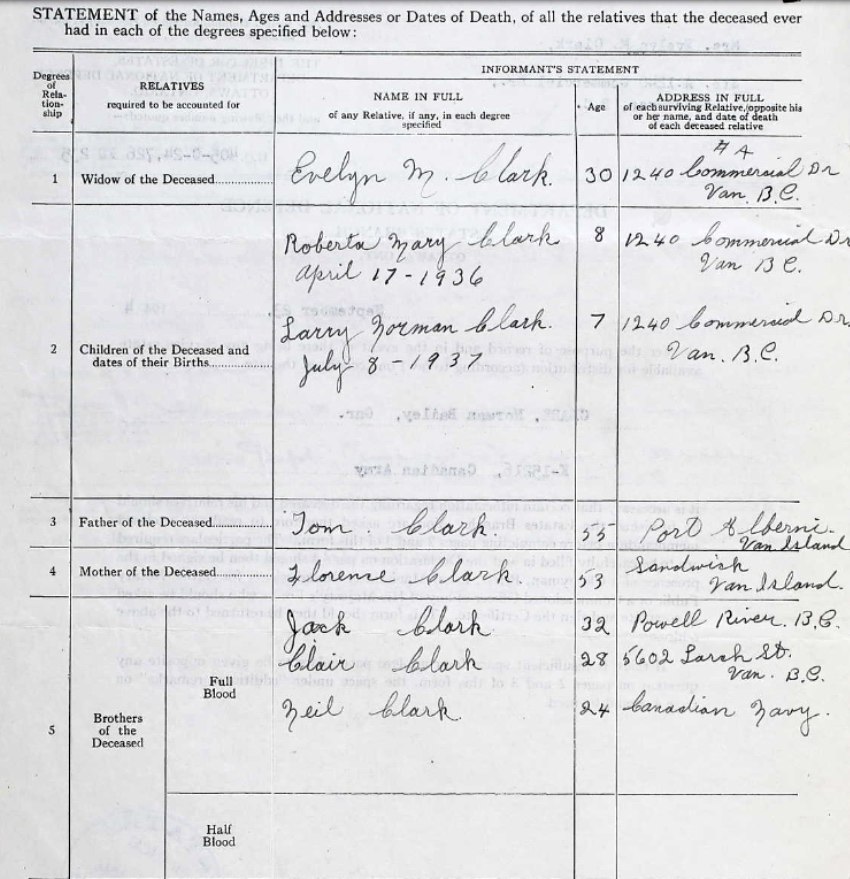 STATEMENT of the Names, Ages and Addresses or Dates of Death, of all the relatives that the deceased ever
had in each of the degrees specified below:
Degrees
of
Rela-
tion-
ship
RELATIVES
required to be accounted for
INFORMANT'S STATEMENT
NAME IN FULL
of any Relative, if any, in each degree
specified
Age
ADDRESS IN FULL
of each surviving Relative, opposite his
or her name, and date of death
of each deceased relative
# A
1 Widow of the Deceased Evelyn M. Clark. 30 1240 Commercial Dr
Van. B.C.
Roberta Mary Clark 8 1240 Commercial Dr
April 17-1936 Van B C.
Larry Norman Clark. 7 1240 Commercial Dr.
2 Children of the Deceased and
dates of their Births
July 8-1937 Van. B.C.
3 Father of the Deceased Tom Clark. 55 Port Alberni.
Van Island
4 Mother of the Deceased Florence Clark. 53 Sandwick
Van Island.
Jack Clark. 32 Powell River. B.C.
Clair Clark 28 5602 Larch St.
Van. B.C.
Full
Blood
Neil Clark. 24 Canadian Navy.
5 Brothers
of the
Deceased
Half
Blood